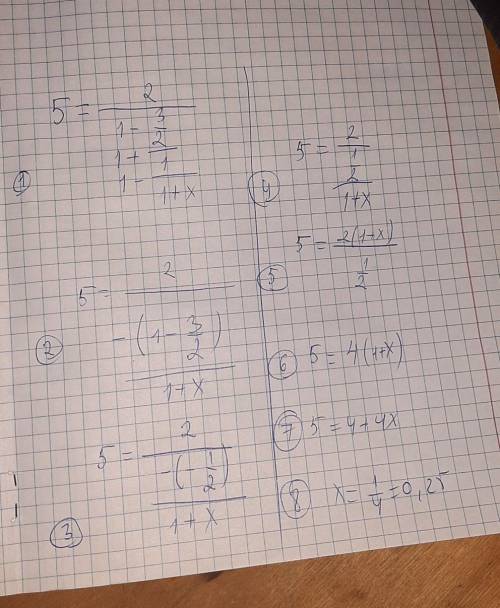 ① 5 = 2 / (1 - (3/2) / (1 + 1 / (1 - 1 / (1+x))))
② 5 = 2 / (-(1 - 3/2) / (1+x))
③ 5 = 2 / (-(-1/2) / (1+x))
④ 5 = 2 / ((1/2) / (1+x))
⑤ 5 = 2(1+x) / (1/2)
⑥ 5 = 4(1+x)
⑦ 5 = 4+4x
⑧ x = 1/4 = 0,25